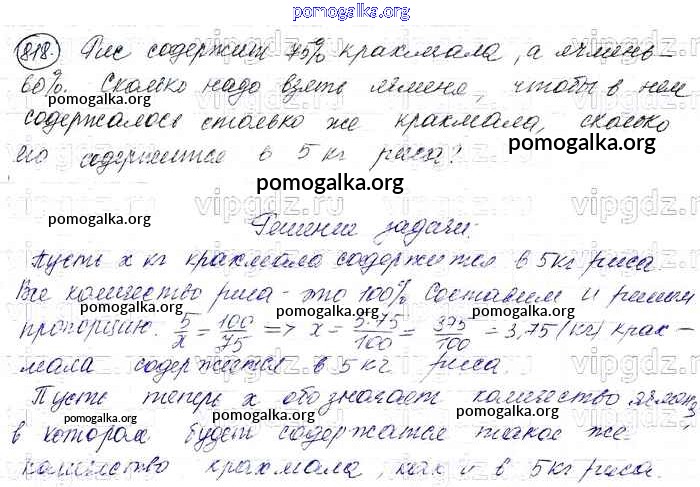 pomogalka.org
818. Рис содержит 75% крахмала, а ячмень -
60%. Сколько надо взять ячменя, чтобы в нем
pomogalka.org pomogalka.org pomogalka.org
содержалось столько же крахмала, сколько
его содержится в 5 кг риса?
pomogalka.org
pomogalka.org
vipgdz.ru
pomogalka.org
Решение задачи.
pomogalka.org
Пусть x кг крахмала содержится в 5 кг риса
Все количество риса - это 100% Составим и решим
пропорцию. 5/x = 100/75 => x = 5·75/100 = 375/100 = 3,75 (кг) крах-
pomogalka.org
мала содержется в 5 кг риса.
pomogalka.org
Пусть теперь x обозначает количество
pomogalka.org
в котором будет содержатся такое же
pomogalka.org
количество крахмала, как и в 5 кг риса.
pomogalka.org